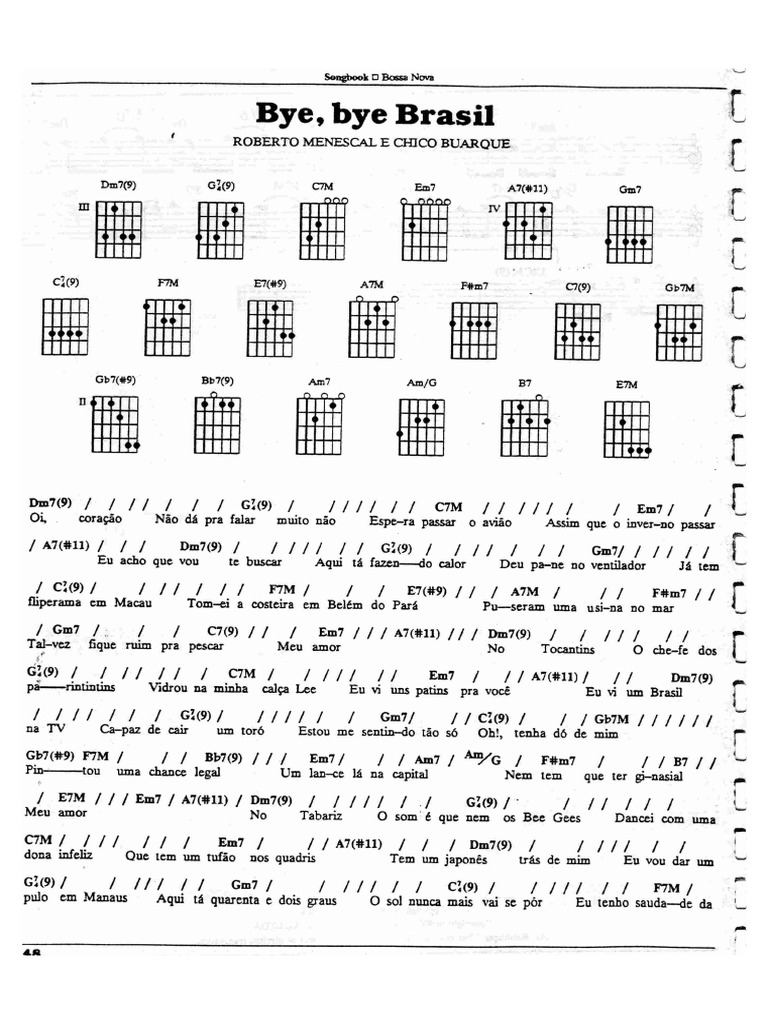 Songbook □ Bossa Nova
Bye, bye Brasil
ROBERTO MENESCAL E CHICO BUARQUE
Dm7(9) G7/4(9) C7M Em7 A7(#11) Gm7
III IV
C7/4(9) F7M E7(#9) A7M F#m7 C7(9) Gb7M
Gb7(#9) Bb7(9) Am7 Am/G B7 E7M
II
Dm7(9) / / / / / / / G7/4(9) / / / / / / / C7M / / / / / / / Em7 / /
Oi, coração Não dá pra falar muito não Espe-ra passar o avião Assim que o inver-no passar
/ A7(#11) / / / Dm7(9) / / / / / / / G7/4(9) / / / / / / / Gm7/ / / / / / /
Eu acho que vou te buscar Aqui tá fazen—do calor Deu pa-ne no ventilador Já tem
/ C7/4(9) / / / / / / / F7M / / / E7(#9) / / / A7M / / / F#m7 / /
fliperama em Macau Tom-ei a costeira em Belém do Pará Pu—seram uma usi-na no mar
/ Gm7 / / / C7(9) / / / Em7 / / / A7(#11) / / / Dm7(9) / / / / / / /
Tal-vez fique ruim pra pescar Meu amor No Tocantins O che-fe dos
G7/4(9) / / / / / / / C7M / / / / / / / Em7 / / / A7(#11) / / / Dm7(9)
pa—rintintins Vidrou na minha calça Lee Eu vi uns patins pra você Eu vi um Brasil
/ / / / / / / G7/4(9) / / / / / / / Gm7/ / / / C7/4(9) / / / Gb7M / / / / / /
na TV Ca-paz de cair um toró Estou me sentin-do tão só Oh!, tenha dó de mim
Gb7(#9) F7M / / / Bb7(9) / / / Em7 / / / Am7 / Am/G / F#m7 / / / B7 / /
Pin——tou uma chance legal Um lan-ce lá na capital Nem tem que ter gi-nasial
/ E7M / / / Em7 / A7(#11) / Dm7(9) / / / / / / / G7/4(9) / / / / / / /
Meu amor No Tabariz O som é que nem os Bee Gees Dancei com uma
C7M / / / / / / / Em7 / / / A7(#11) / / / Dm7(9) / / / / / / /
dona infeliz Que tem um tufão nos quadris Tem um japonês trás de mim Eu vou dar um
G7/4(9) / / / / / / / Gm7 / / / / / / / C7/4(9) / / / / / / / F7M /
pulo em Manaus Aqui tá quarenta e dois graus O sol nunca mais vai se pôr Eu tenho sauda—de da
48